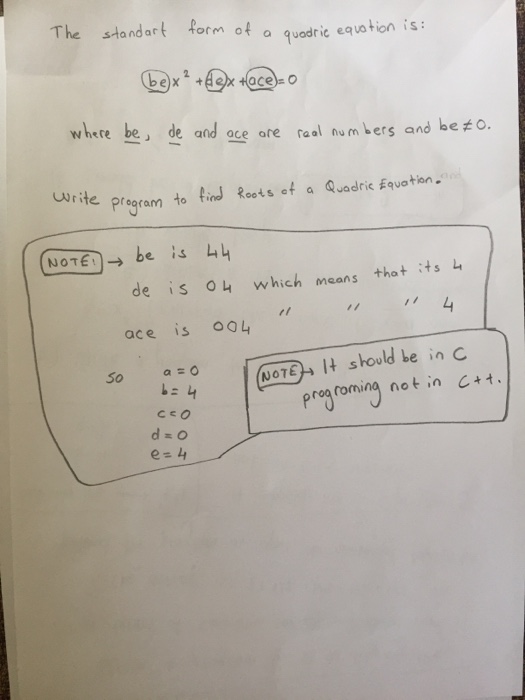 The standart form of a quadric equation is:
(be)x² + (de)x + (ace) = 0
where be, de and ace are real numbers and be ≠ 0.
Write program to find Roots of a Quadric Equation.
NOTE! → be is 44
de is 04 which means that its 4
ace is 004 " " " 4
so a = 0
b = 4
c = 0
d = 0
e = 4
NOTE → It should be in C
programing not in C++.